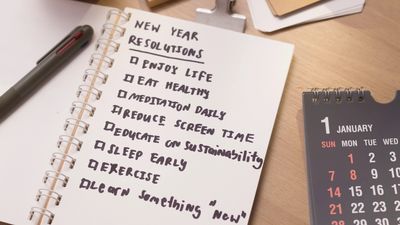 NEW YEAR
RESOLUTIONS
ENJOY LIFE
EAT HEALTHY
MEDITATION DAILY
REDUCE SCREEN TIME
EDUCATE ON SUSTAINABILITY
SLEEP EARLY
EXERCISE
LEARN SOMETHING "NEW"
1 JANUARY
SUN MON TUE
1 2 3
7 8 9 10
14 15 16 17
21 22 23 24
28 29 30 31